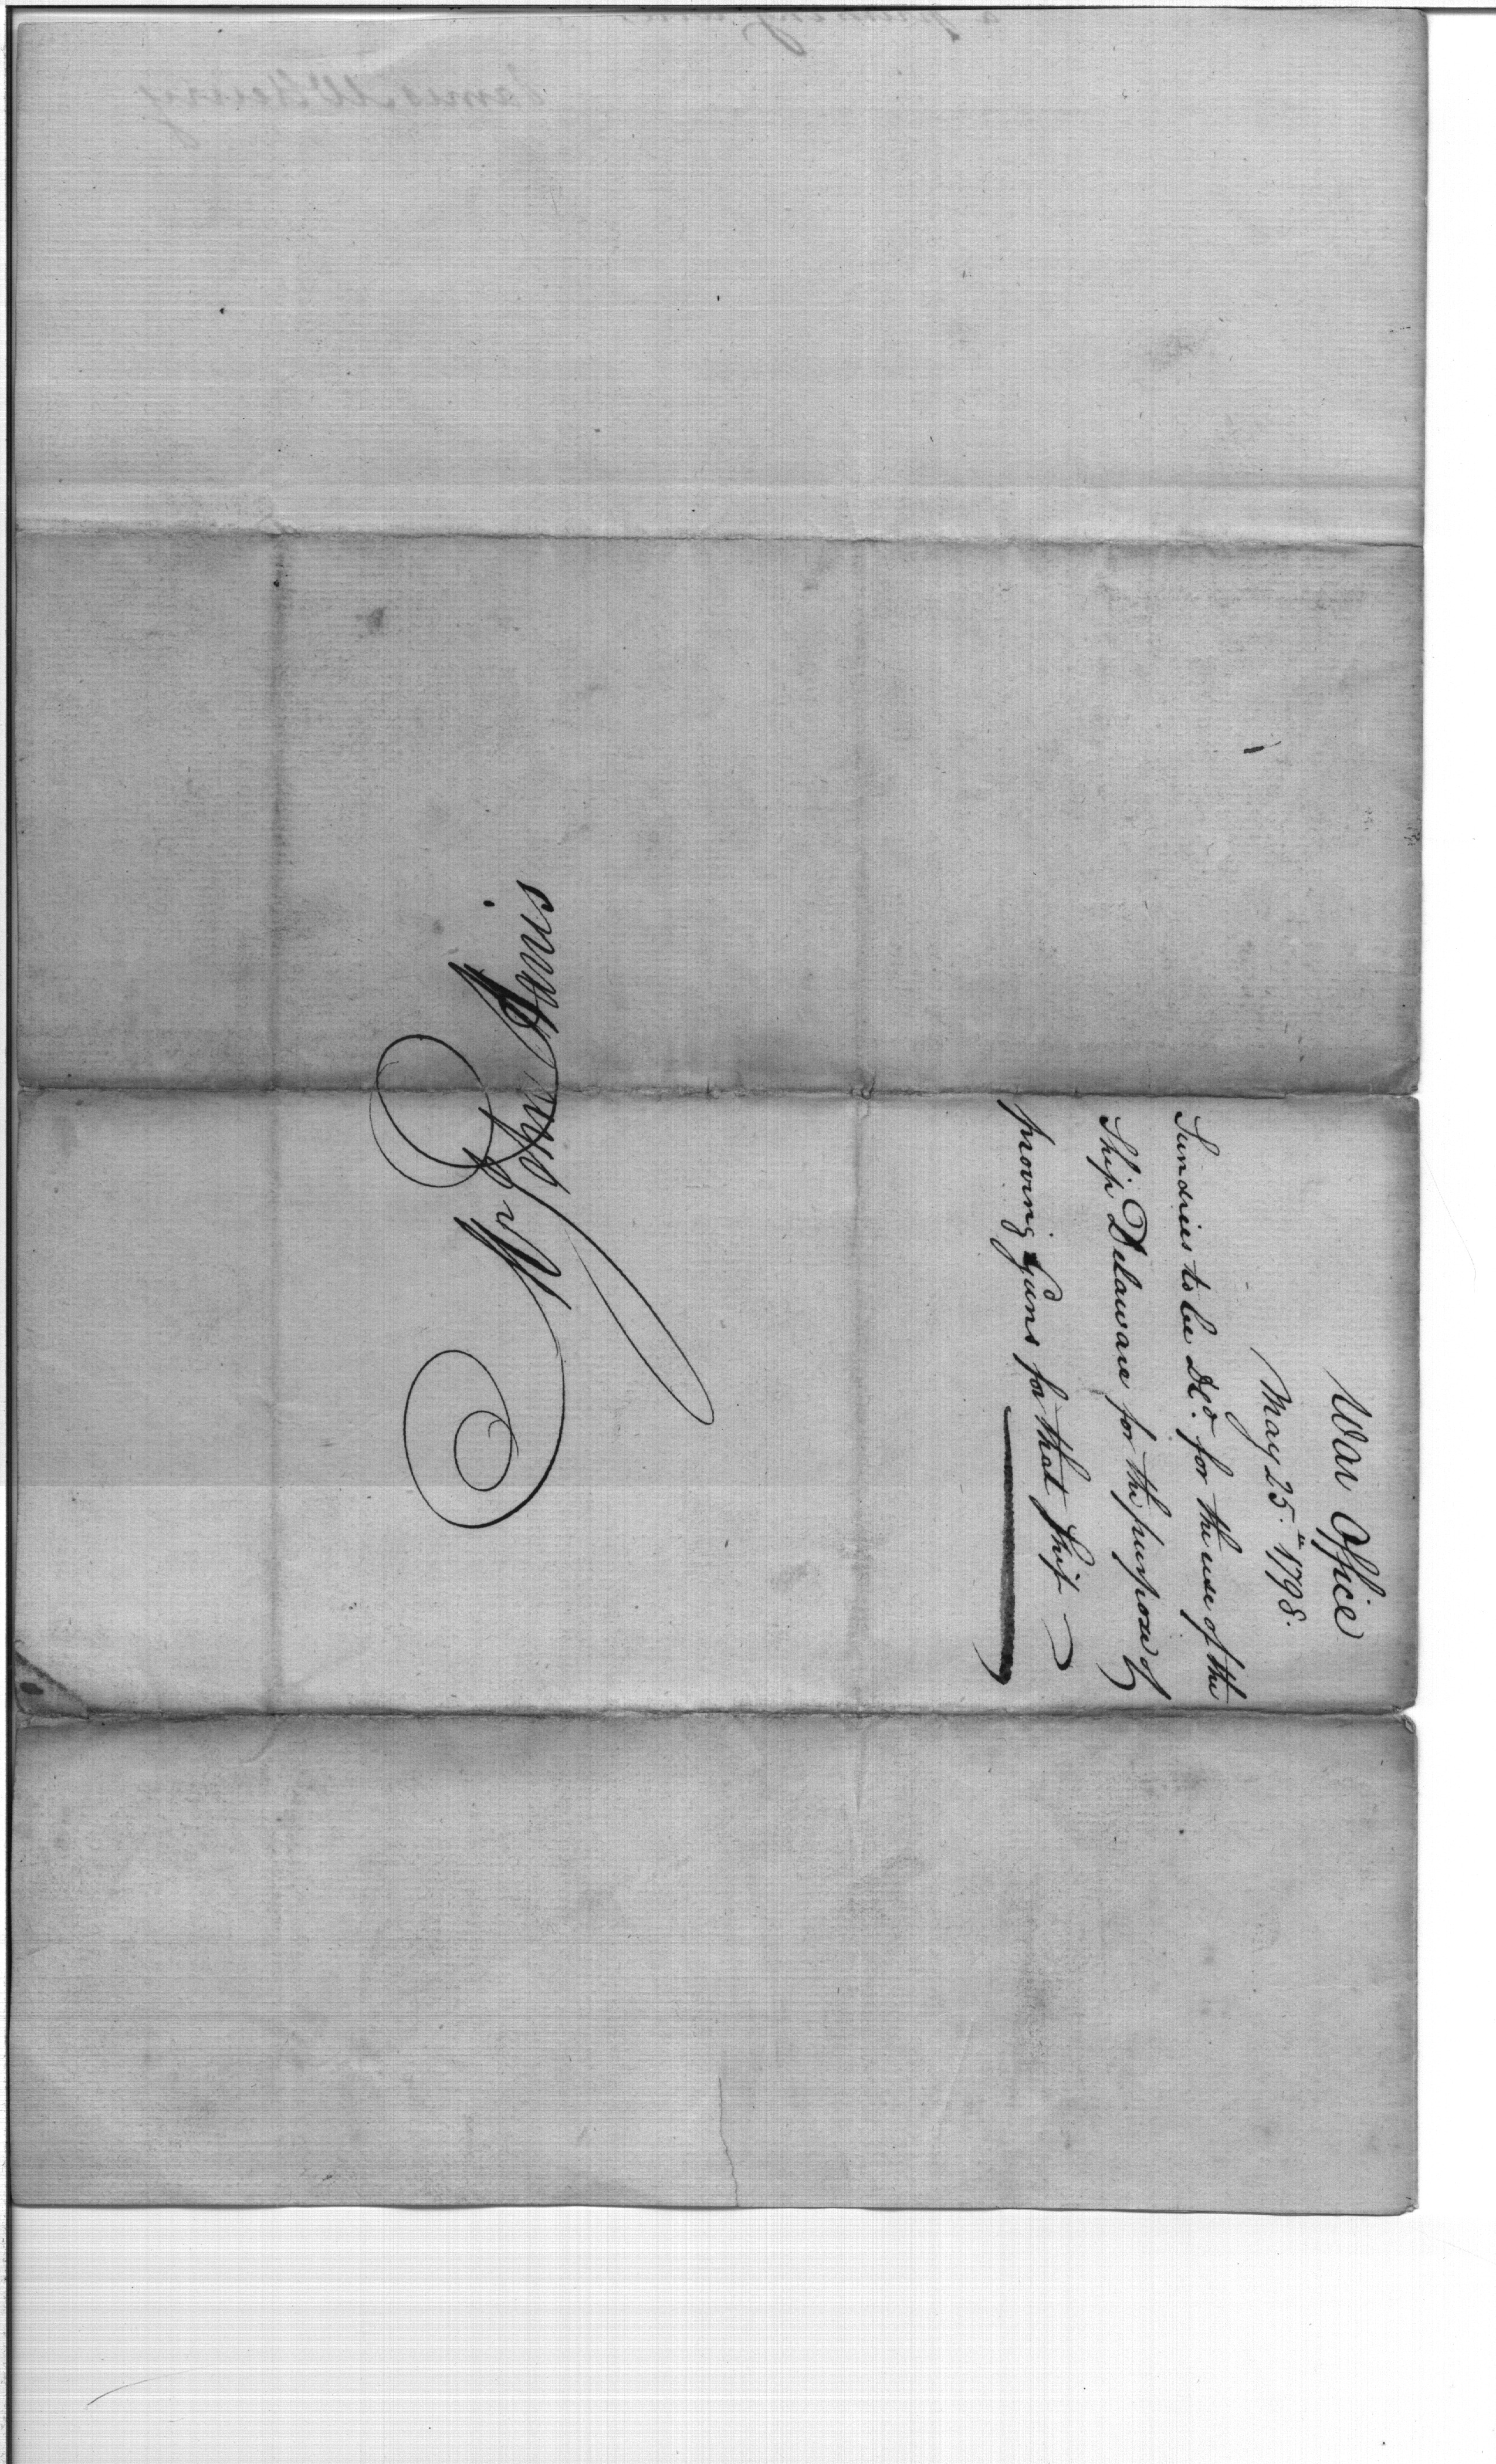 War Office
May 25.th 1798.
Sundries to be Dld. for the use of the
Ship Delaware for the purpose of
proving Guns for that Ship
Mr John Harris
James McHenry